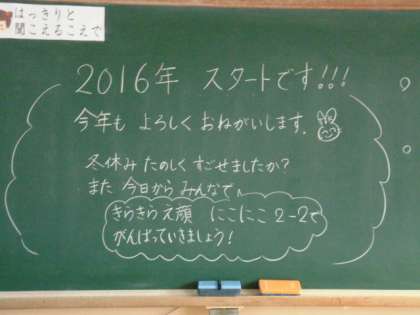 はっきりと
聞こえるこえで
2016年 スタートです!!!
今年も よろしく おねがいします。
冬休み たのしく すごせましたか?
また 今日から みんなで、
きらきら え顔 にこにこ 2-2で
がんばっていきましょう!